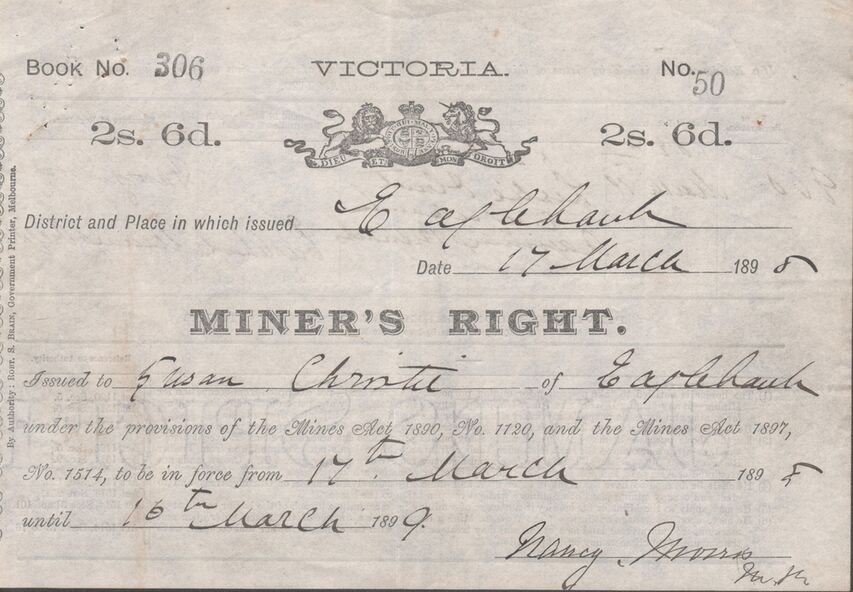 BOOK NO. 306 VICTORIA. No. 50
2s. 6d. 2s. 6d.
DIEU ET MON DROIT
District and Place in which issued Eaglehawk
Date 17 March 1898
MINER'S RIGHT.
Issued to Susan Christie of Eaglehawk
under the provisions of the Mines Act 1890, No. 1120, and the Mines Act 1897,
No. 1514, to be in force from 17th March 1898
until 16th March 1899.
Nancy Morris
By Authority: ROBT. S. BRAIN, Government Printer, Melbourne.